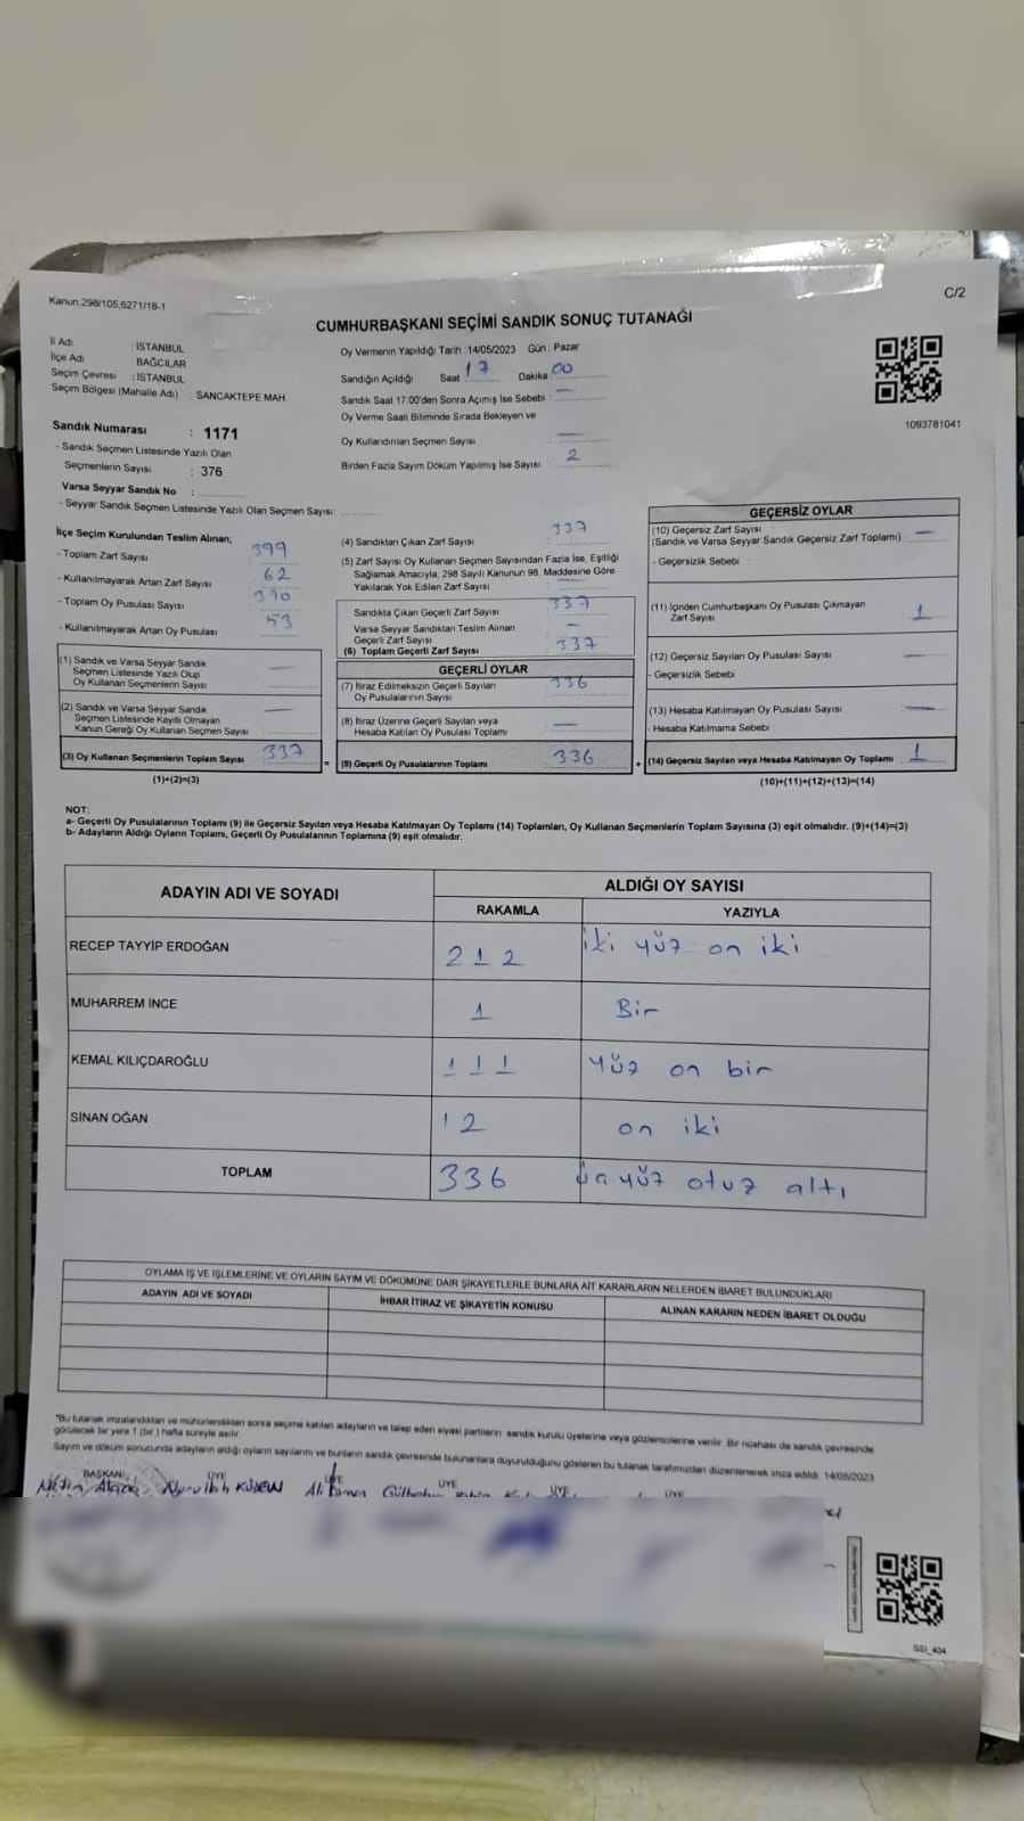 Kanun:298/105,6271/18-1
C/2
CUMHURBAŞKANI SEÇİMİ SANDIK SONUÇ TUTANAĞI
İl Adı : İSTANBUL
İlçe Adı BAĞCILAR
Seçim Çevresi : İSTANBUL
Seçim Bölgesi (Mahalle Adı) SANCAKTEPE MAH.
Sandık Numarası : 1171
- Sandık Seçmen Listesinde Yazılı Olan
Seçmenlerin Sayısı : 376
Varsa Seyyar Sandık No :
- Seyyar Sandık Seçmen Listesinde Yazılı Olan Seçmen Sayısı:
Oy Vermenin Yapıldığı Tarih :14/05/2023 Gün: Pazar
Sandığın Açıldığı Saat 17 Dakika 00
Sandık Saat 17:00'den Sonra Açımış İse Sebebi : —
Oy Verme Saati Bitiminde Sırada Bekleyen ve
Oy Kullandırılan Seçmen Sayısı —
Birden Fazla Sayım Döküm Yapılmış İse Sayısı 2
1093781041
İlçe Seçim Kurulundan Teslim Alınan;
- Toplam Zarf Sayısı 399
- Kullanılmayarak Artan Zarf Sayısı 62
- Toplam Oy Pusulası Sayısı 390
- Kullanılmayarak Artan Oy Pusulası 53
(1) Sandık ve Varsa Seyyar Sandık
Seçmen Listesinde Yazılı Olup
Oy Kullanan Seçmenlerin Sayısı —
(2) Sandık ve Varsa Seyyar Sandık
Seçmen Listesinde Kayıtlı Olmayan
Kanun Gereği Oy Kullanan Seçmen Sayısı —
(3) Oy Kullanan Seçmenlerin Toplam Sayısı 337
(1)+(2)=(3)
(4) Sandıktan Çıkan Zarf Sayısı 337
(5) Zarf Sayısı Oy Kullanan Seçmen Sayısından Fazla İse, Eşitliği
Sağlamak Amacıyla, 298 Sayılı Kanunun 98. Maddesine Göre
Yakılarak Yok Edilen Zarf Sayısı
Sandıkta Çıkan Geçerli Zarf Sayısı 337
Varsa Seyyar Sandıktan Teslim Alınan
Geçerli Zarf Sayısı —
(6) Toplam Geçerli Zarf Sayısı 337
GEÇERLİ OYLAR
(7) İtiraz Edilmeksizin Geçerli Sayılan
Oy Pusulalarının Sayısı 336
(8) İtiraz Üzerine Geçerli Sayılan veya
Hesaba Katılan Oy Pusulası Toplamı —
=
(9) Geçerli Oy Pusulalarının Toplamı 336
GEÇERSİZ OYLAR
(10) Geçersiz Zarf Sayısı —
(Sandık ve Varsa Seyyar Sandık Geçersiz Zarf Toplamı)
- Geçersizlik Sebebi
(11) İçinden Cumhurbaşkanı Oy Pusulası Çıkmayan
Zarf Sayısı 1
(12) Geçersiz Sayılan Oy Pusulası Sayısı —
- Geçersizlik Sebebi
(13) Hesaba Katılmayan Oy Pusulası Sayısı —
- Hesaba Katılmama Sebebi
+
(14) Geçersiz Sayılan veya Hesaba Katılmayan Oy Toplamı 1
(10)+(11)+(12)+(13)=(14)
NOT:
a- Geçerli Oy Pusulalarının Toplamı (9) ile Geçersiz Sayılan veya Hesaba Katılmayan Oy Toplamı (14) Toplamları, Oy Kullanan Seçmenlerin Toplam Sayısına (3) eşit olmalıdır. (9)+(14)=(3)
b- Adayların Aldığı Oyların Toplamı, Geçerli Oy Pusulalarının Toplamına (9) eşit olmalıdır.
ADAYIN ADI VE SOYADI
ALDIĞI OY SAYISI
RAKAMLA YAZIYLA
RECEP TAYYİP ERDOĞAN 212 iki yüz on iki
MUHARREM İNCE 1 Bir
KEMAL KILIÇDAROĞLU 111 yüz on bir
SİNAN OĞAN 12 on iki
TOPLAM 336 yüz otuz altı
OYLAMA İŞ VE İŞLEMLERİNE VE OYLARIN SAYIM VE DÖKÜMÜNE DAİR ŞİKAYETLERLE BUNLARA AİT KARARLARIN NELERDEN İBARET BULUNDUKLARI
ADAYIN ADI VE SOYADI İHBAR İTİRAZ VE ŞİKAYETİN KONUSU ALINAN KARARIN NEDEN İBARET OLDUĞU
"Bu tutanak imzalandıktan ve mühürlendikten sonra seçime katılan adayların ve talep eden siyasi partilerin sandık kurulu üyelerine veya gözlemcilerine verilir. Bir nüshası da sandık çevresinde
görülecek bir yere 1 (bir) hafta süreyle asılır.
Sayım ve döküm sonucunda adayların aldığı oyların sayılarını ve bunların sandık çevresinde bulunanlara duyurulduğunu gösteren bu tutanak tarafımızdan düzenlenerek imza edildi. 14/05/2023
BAŞKAN ÜYE ÜYE ÜYE ÜYE ÜYE
Metin Nurullah